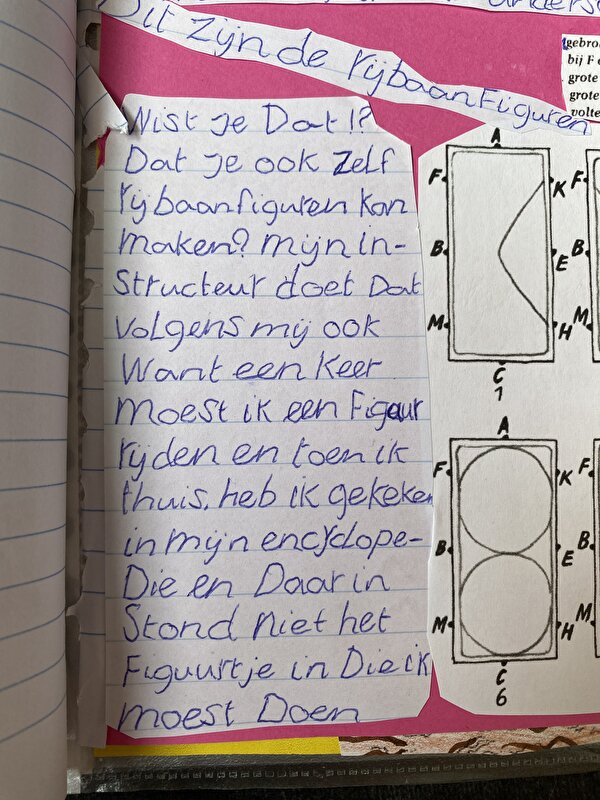 Dit zijn de rijbaanfiguren
gebro
bij F e
grote
grote
volte
Wist je Dat!?
Dat je ook zelf
rijbaanfiguren kan
maken? mijn in-
Structeur doet Dat
volgens mij ook
Want een keer
moest ik een Figuur
rijden en toen ik
thuis, heb ik gekeken
in mijn encyclope-
Die en Daar in
Stond niet het
Figuurtje in Die ik
moest Doen
A
F K F
B E B
M H M
C
1
A
F K F
B E B
M H M
C
6